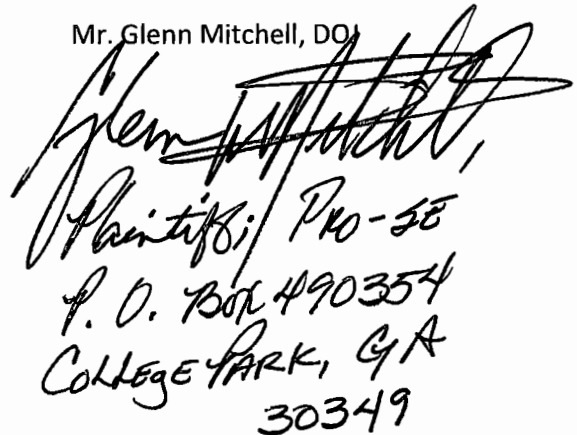 Mr. Glenn Mitchell, DOI
Glenn Mitchell,
Plaintiff; PRO-SE
P. O. Box 490354
COLLEGE PARK, GA
30349